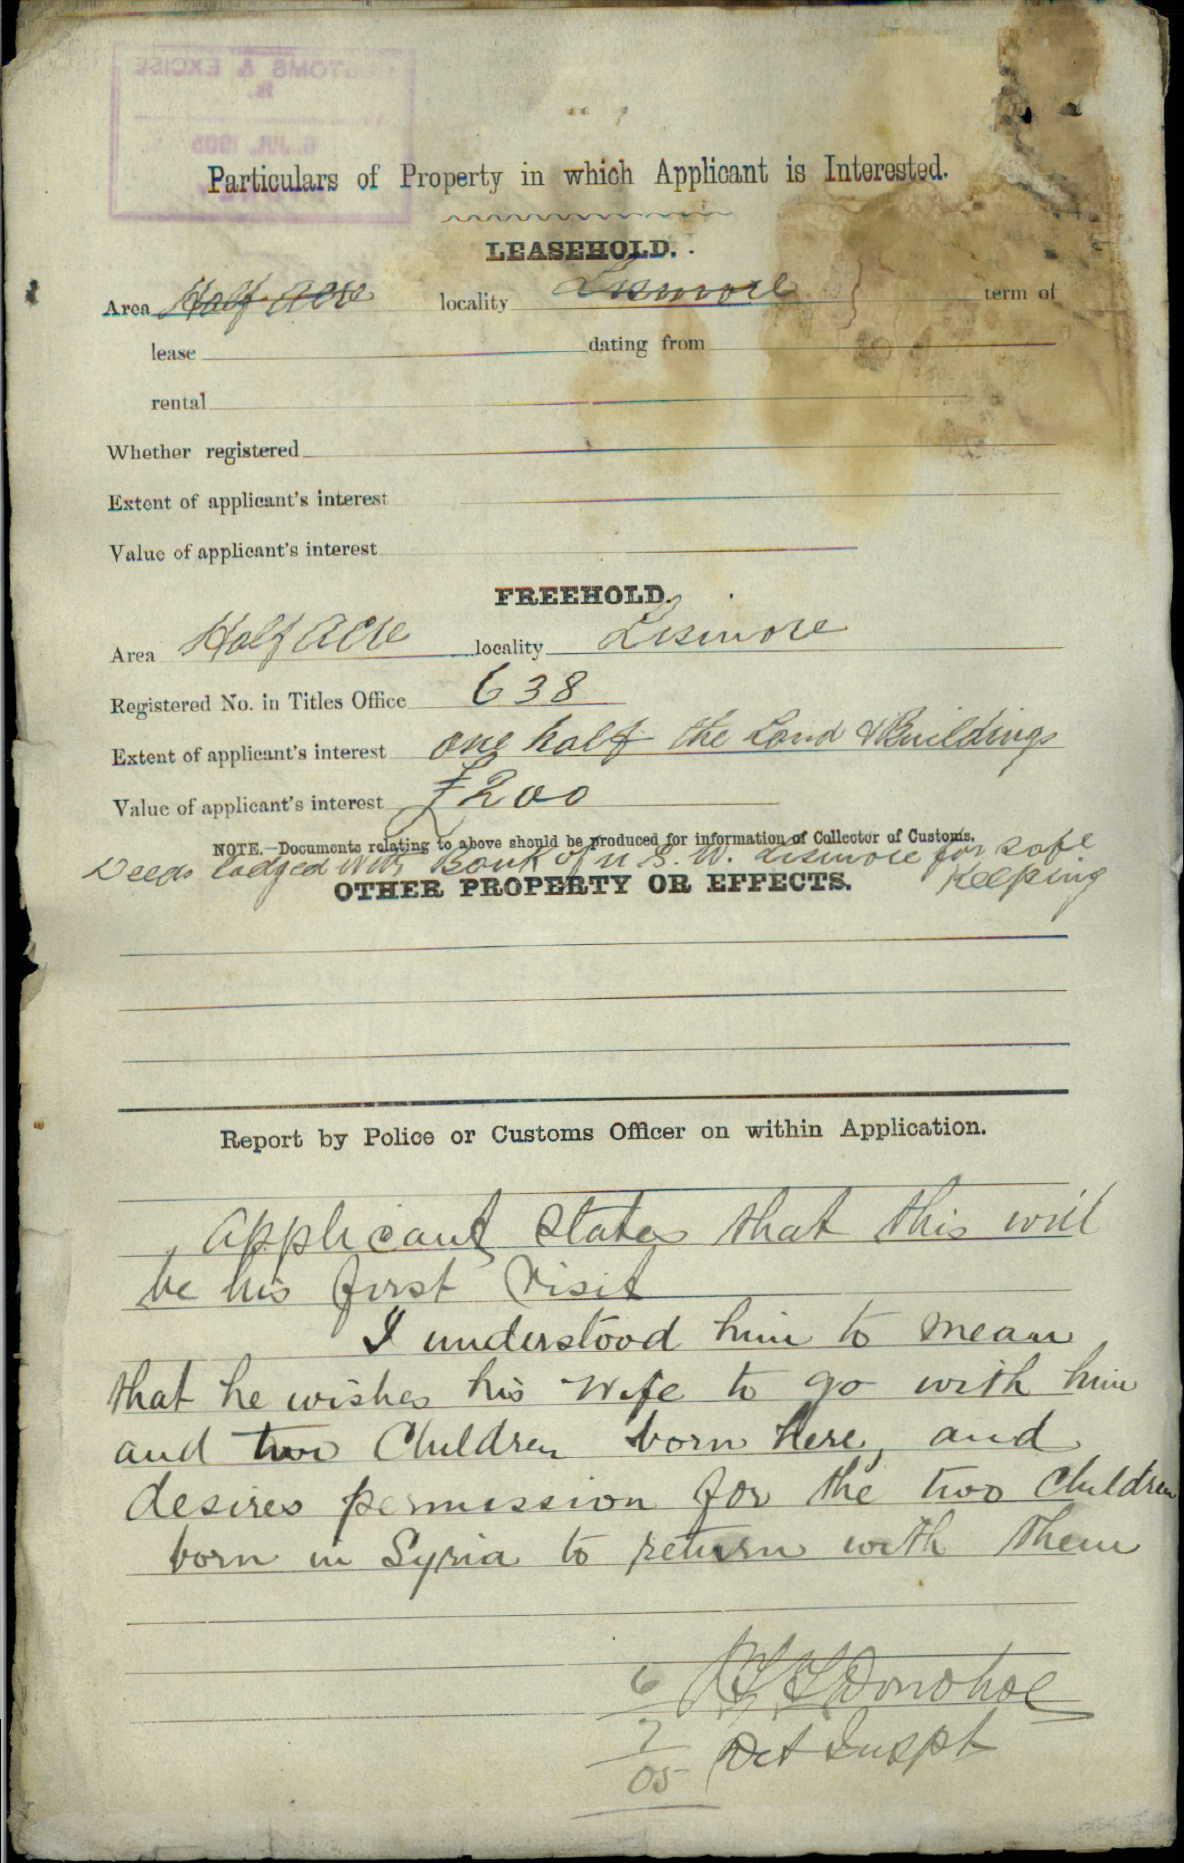 CUSTOMS & EXCISE
6 JUL 1905
Particulars of Property in which Applicant is Interested.
LEASEHOLD.
Area Half Acre locality Lismore term of
lease dating from
rental
Whether registered
Extent of applicant's interest
Value of applicant's interest
FREEHOLD.
Area Half Acre locality Lismore
Registered No. in Titles Office 638
Extent of applicant's interest one half the Land & Buildings
Value of applicant's interest £200
NOTE.—Documents relating to above should be produced for information of Collector of Customs.
Deeds lodged with Bank of N. S. W. Lismore for safe
Keeping
OTHER PROPERTY OR EFFECTS.
Report by Police or Customs Officer on within Application.
Applicant states that this will
be his first visit
I understood him to mean
that he wishes his Wife to go with him
and two Children born here, and
desires permission for the two Children
born in Syria to return with them
6 Donohoe
7 Inspt
05